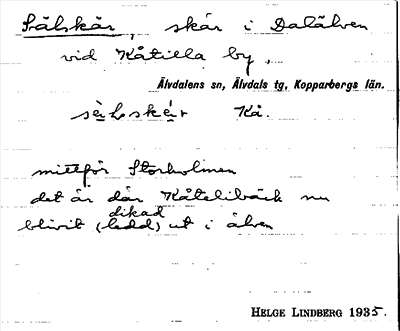 Sälskär, skär i Dalälven
vid Kåtilla by.
Älvdalens sn, Älvdals tg, Kopparbergs län.
Kå.
mittför Storholmen
det är där Kåtelibäck nu
dikad
blivit (ledd) ut i älven
HELGE LINDBERG 1935.